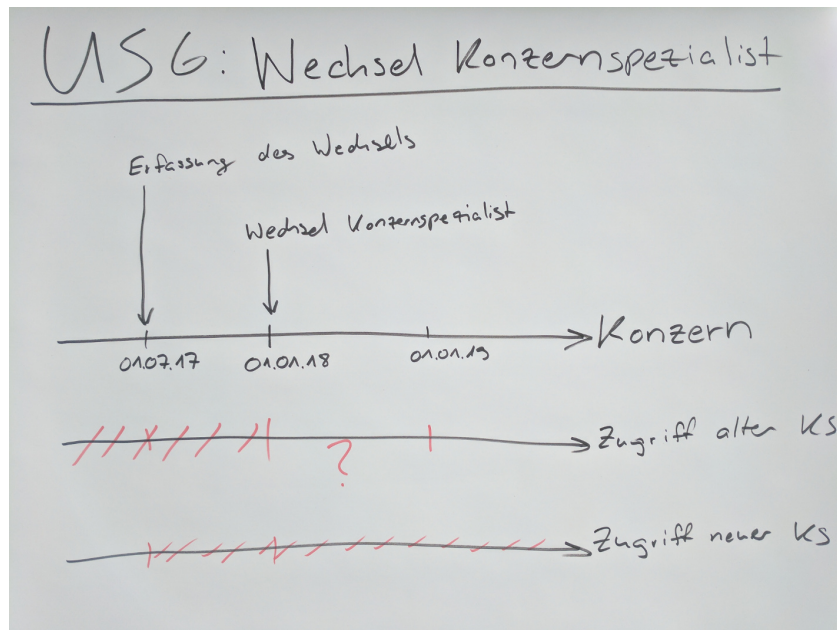 US6: Wechsel Konzernspezialist
Erfassung des Wechsels
Wechsel Konzernspezialist
Konzern
01.07.17
01.01.18
01.01.19
Zugriff alter KS
?
Zugriff neuer KS